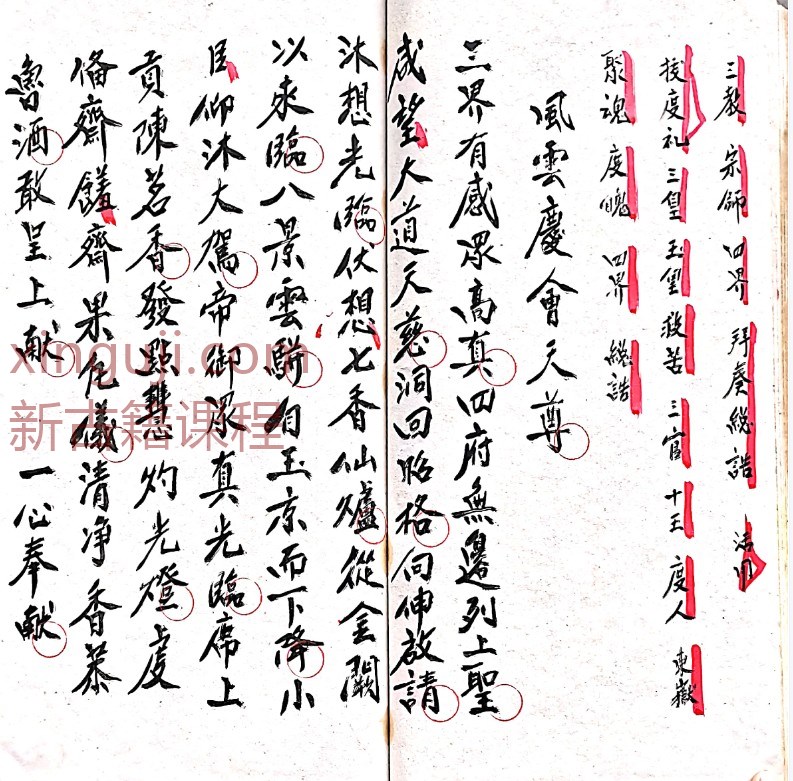 三教 宗師 四界 拜奏總誥 活用
拔度礼 三皇 玉皇 救苦 三官 十王 度人 東嶽
聚魂 度魄 四界 總誥
風雲慶會天尊
三界有感眾高真四府無邊列上聖
咸望大道天慈洞回昭格向伸啟請
沐想光臨伏想七香仙爐從金闕
以來臨八景雲駢自玉京而下降小
臣仰沐大駕帝御眾真光臨席上
貢陳茗香發點慧灼光燈虔
俻齋饈齋果凡儀清净香茶
魯酒敢呈上献 一心奉献
xinguji.com
新古籍课程